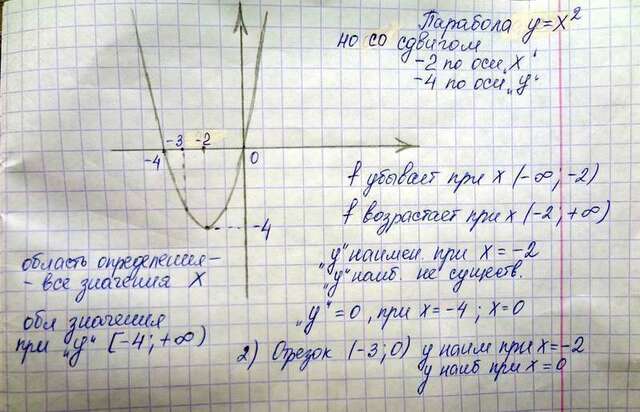 Парабола y=x²
но со сдвигом
-2 по оси „x"
-4 по оси „y"
-4
-3
-2
0
-4
f убывает при x (-∞; -2)
f возрастает при x (-2; +∞)
„y" наимен. при x = -2
„y" наиб. не существ.
„y" = 0, при x = -4; x=0
область определения-
- все значения x
обл значения
при „y" [-4; +∞)
2) Отрезок (-3; 0) y наим при x=-2
y наиб при x=0